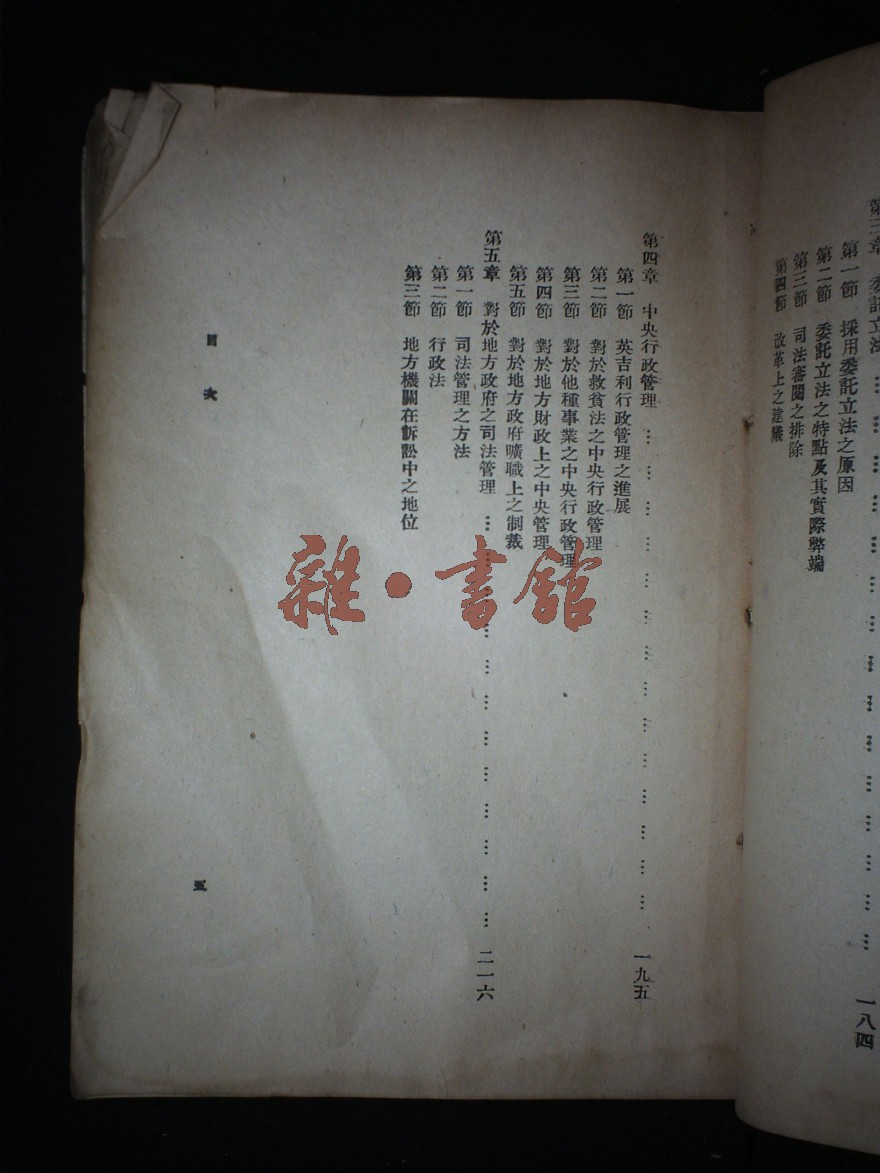 第三章　委託立法 … … … … … … … … … … … … … … … … 一八四
第一節　採用委託立法之原因
第二節　委託立法之特點及其實際弊端
第三節　司法審閱之排除
第四節　改革上之建議
第四章　中央行政管理 … … … … … … … … … … … … … … 一九五
第一節　英吉利行政管理之進展
第二節　對於救貧法之中央行政管理
第三節　對於他種事業之中央行政管理
第四節　對於地方財政上之中央管理
第五節　對於地方政府曠職上之制裁
第五章　對於地方政府之司法管理 … … … … … … … … … … … … 二一六
第一節　司法管理之方法
第二節　行政法
第三節　地方機關在訴訟中之地位
目　次
五
雜·書館